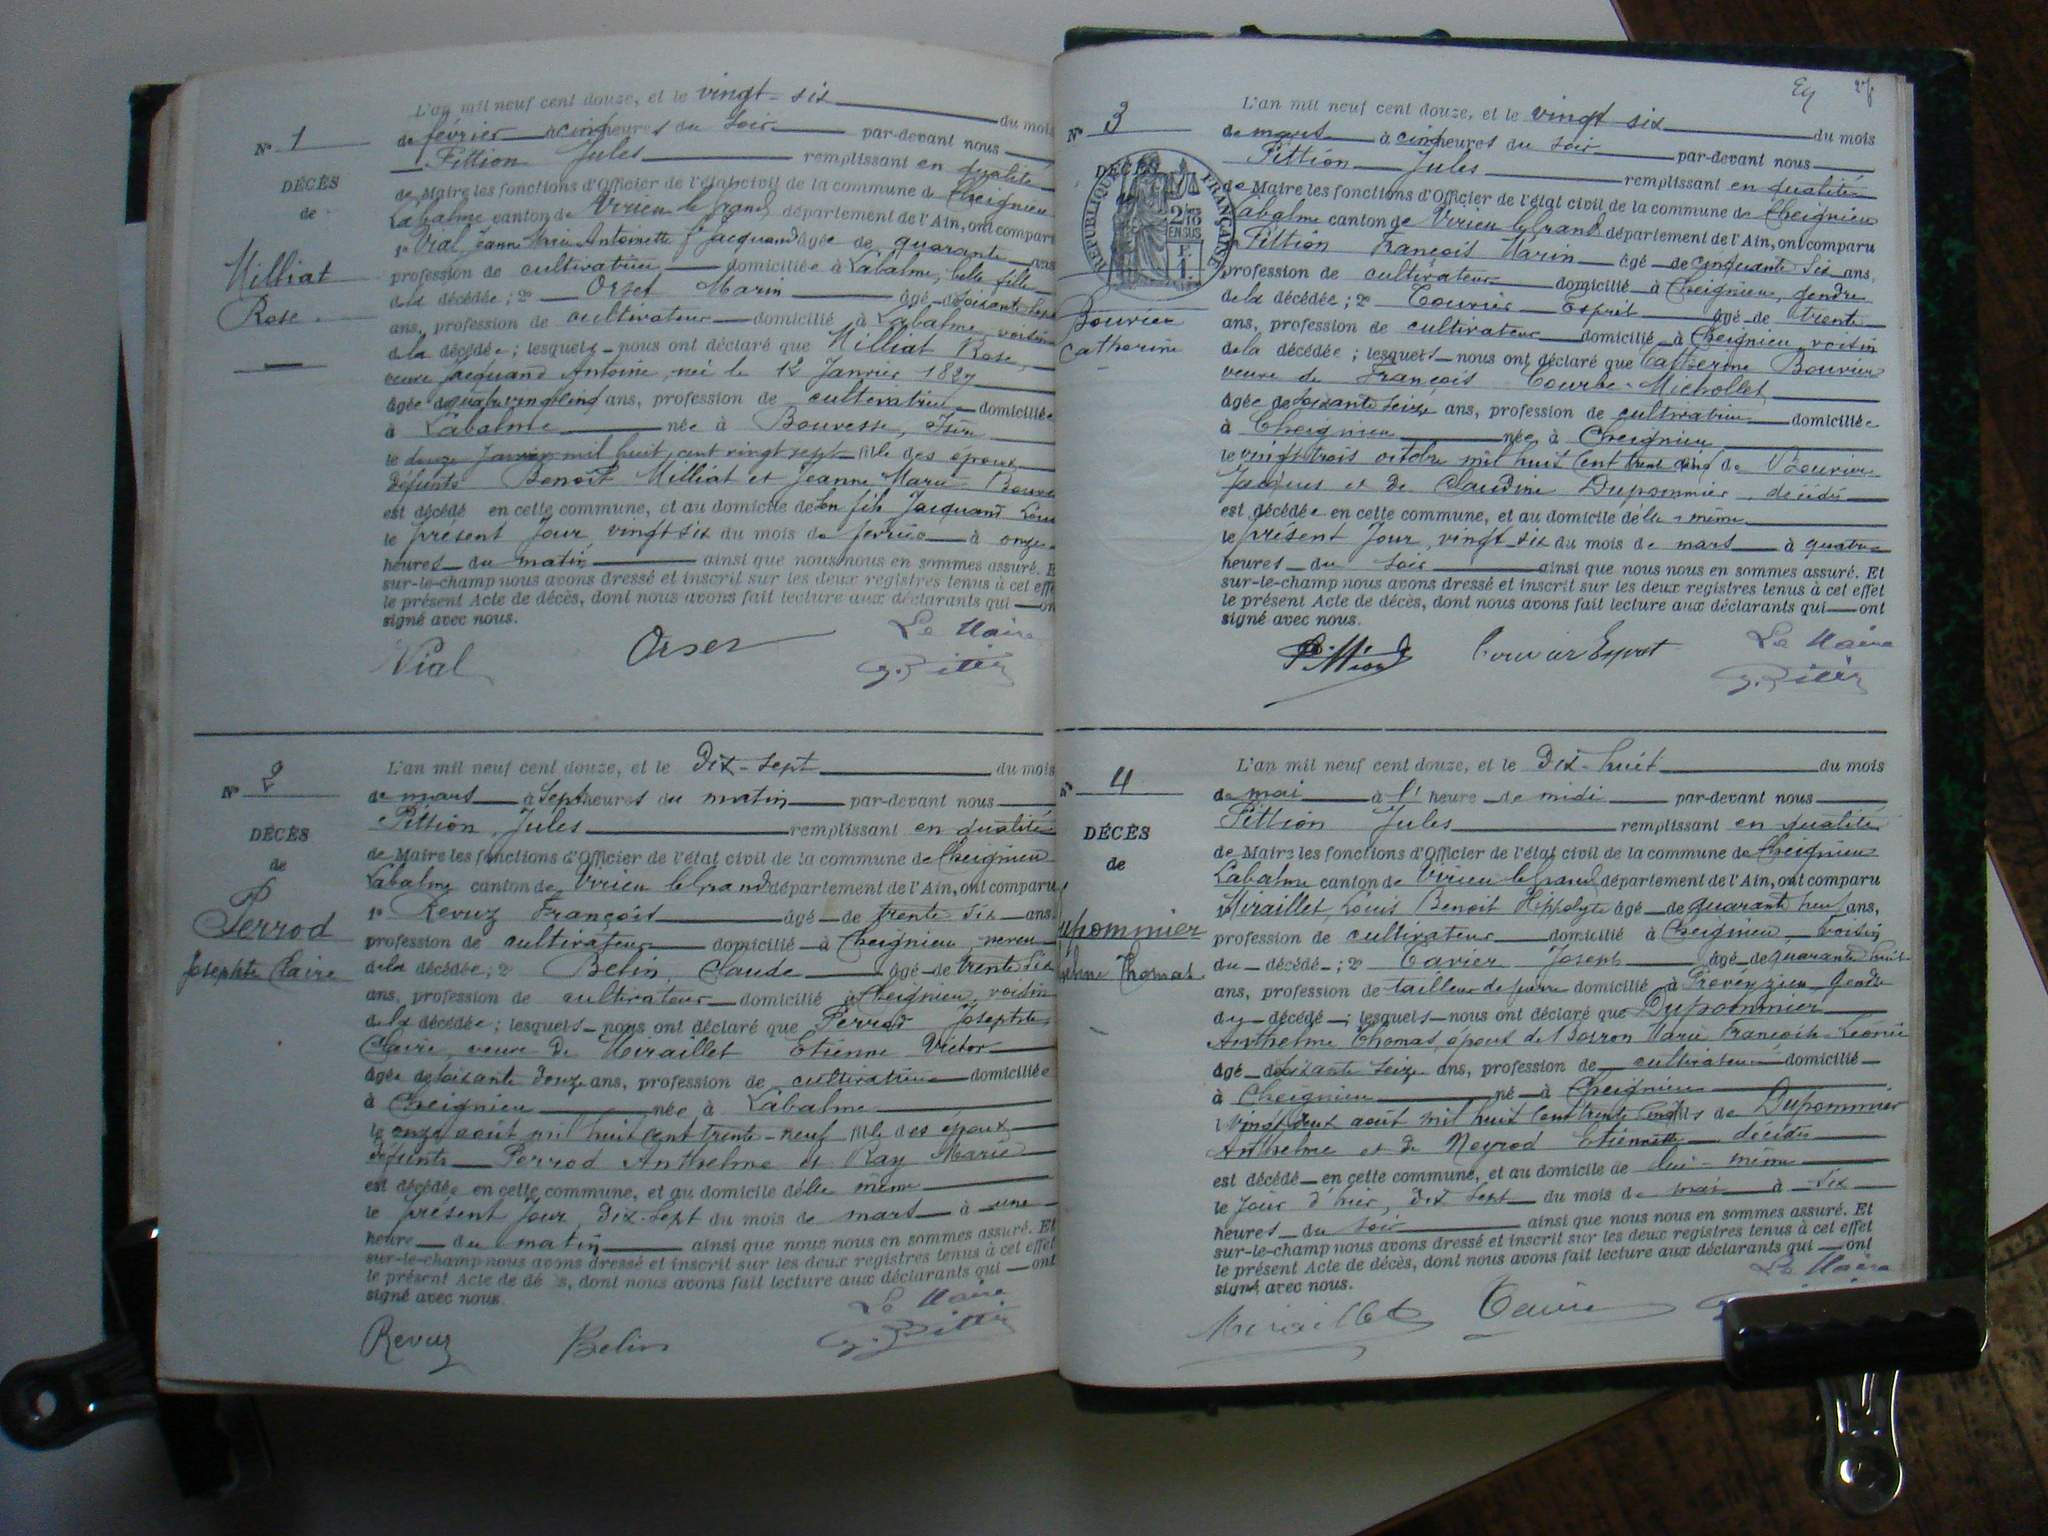 N° 1
DÉCÈS
de
Milliat
Rose
L'an mil neuf cent douze, et le vingt-six du mois
de février à cinq heures du soir par-devant nous
Pittion Jules remplissant en qualité
de Maire les fonctions d'Officier de l'état civil de la commune de Cheignieu
Labalme canton de Virieu le Grand département de l'Ain, ont comparu
1° Vial Jeanne Marie Antoinette fe Jacquand âgée de quarante ans
profession de cultivatrice domiciliée à Labalme, belle fille
de la décédée; 2° Orset Marin âgé de soixante sept
ans, profession de cultivateur domicilié à Labalme, voisin
de la décédée; lesquels nous ont déclaré que Milliat Rose,
veuve Jacquand Antoine, née le 12 Janvier 1827
âgée de quatre vingt cinq ans, profession de cultivatrice domiciliée
à Labalme née à Bouvesse, Isère
le douze Janvier mil huit cent vingt sept fille des époux
défunts Benoît Milliat et Jeanne Marie
est décédé en cette commune, et au domicile de son fils Jacquand
le présent Jour, vingt six du mois de février à onze
heures du matin ainsi que nous nous en sommes assuré. Et
sur-le-champ nous avons dressé et inscrit sur les deux registres tenus à cet effet
le présent Acte de décès, dont nous avons fait lecture aux déclarants qui ont
signé avec nous.
Vial Orset Le Maire
J. Pittion
N° 2
DÉCÈS
de
Perrod
Josephte Claire
L'an mil neuf cent douze, et le Dix-sept du mois
de mars à sept heures du matin par-devant nous
Pittion Jules remplissant en qualité
de Maire les fonctions d'Officier de l'état civil de la commune de Cheignieu
Labalme canton de Virieu le Grand département de l'Ain, ont comparu
1° Revuz François âgé de trente six ans
profession de cultivateur domicilié à Cheignieu, neveu
de la décédée; 2° Belin, Claude âgé de trente six
ans, profession de cultivateur domicilié à Cheignieu, voisin
de la décédée; lesquels nous ont déclaré que Perrod Josephte
Claire, veuve de Miraillet Etienne Victor
âgée de soixante douze ans, profession de cultivatrice domiciliée
à Cheignieu née à Labalme
le onze août mil huit cent trente-neuf fille des époux
défunts Perrod Anthelme et Ray Marie
est décédée en cette commune, et au domicile d'elle même
le présent Jour, Dix-Sept du mois de mars à une
heure du matin ainsi que nous nous en sommes assuré. Et
sur-le-champ nous avons dressé et inscrit sur les deux registres tenus à cet effet
le présent Acte de décès, dont nous avons fait lecture aux déclarants qui ont
signé avec nous.
Revuz Belin Le Maire
J. Pittion
27
N° 3
DÉCÈS
RÉPUBLIQUE FRANÇAISE
2/10 EN SUS
Bouvier
Catherine
L'an mil neuf cent douze, et le vingt six du mois
de mars à cinq heures du soir par-devant nous
Pittion Jules remplissant en qualité
de Maire les fonctions d'Officier de l'état civil de la commune de Cheignieu
Labalme canton de Virieu le Grand département de l'Ain, ont comparu
Pittion François Marin âgé de cinquante six ans,
profession de cultivateur domicilié à Cheignieu, gendre
de la décédée; 2° Couvier Esprit âgé de trente
ans, profession de cultivateur domicilié à Cheignieu, voisin
de la décédée; lesquels nous ont déclaré que Catherine Bouvier
veuve de François Tourte-Michollet
âgée de soixante seize ans, profession de cultivatrice domiciliée
à Cheignieu née à Cheignieu
le vingt trois octobre mil huit cent trente cinq de Bouvier
Jacques et de Claudine Dupommier, décédés
est décédée en cette commune, et au domicile d'elle même
le présent Jour, vingt six du mois de mars à quatre
heures du soir ainsi que nous nous en sommes assuré. Et
sur-le-champ nous avons dressé et inscrit sur les deux registres tenus à cet effet
le présent Acte de décès, dont nous avons fait lecture aux déclarants qui ont
signé avec nous.
Pittion Couvier Esprit Le Maire
J. Pittion
N° 4
DÉCÈS
de
Dupommier
Anthelme Thomas
L'an mil neuf cent douze, et le Dix-huit du mois
de mai à l'heure de midi par-devant nous
Pittion Jules remplissant en qualité
de Maire les fonctions d'Officier de l'état civil de la commune de Cheignieu
Labalme canton de Virieu le Grand département de l'Ain, ont comparu
1° Miraillet Louis Benoit Hippolyte âgé de quarante neuf ans,
profession de cultivateur domicilié à Cheignieu, voisin
du décédé; 2° Tavier Joseph âgé de quarante huit
ans, profession de tailleur de pierre domicilié à Prévéyzieu, gendre
du décédé; lesquels nous ont déclaré que Dupommier
Anthelme Thomas, époux de Borron Marie Françoise Léonie
âgé de soixante seize ans, profession de cultivateur domicilié
à Cheignieu né à Cheignieu
le vingt deux août mil huit cent trente cinq fils de Dupommier
Anthelme et de Neyrod Etiennette décédés
est décédé en cette commune, et au domicile de lui-même
le Jour d'hier, dix sept du mois de mai à six
heures du soir ainsi que nous nous en sommes assuré. Et
sur-le-champ nous avons dressé et inscrit sur les deux registres tenus à cet effet
le présent Acte de décès, dont nous avons fait lecture aux déclarants qui ont
signé avec nous.
Miraillet Tavier Le Maire